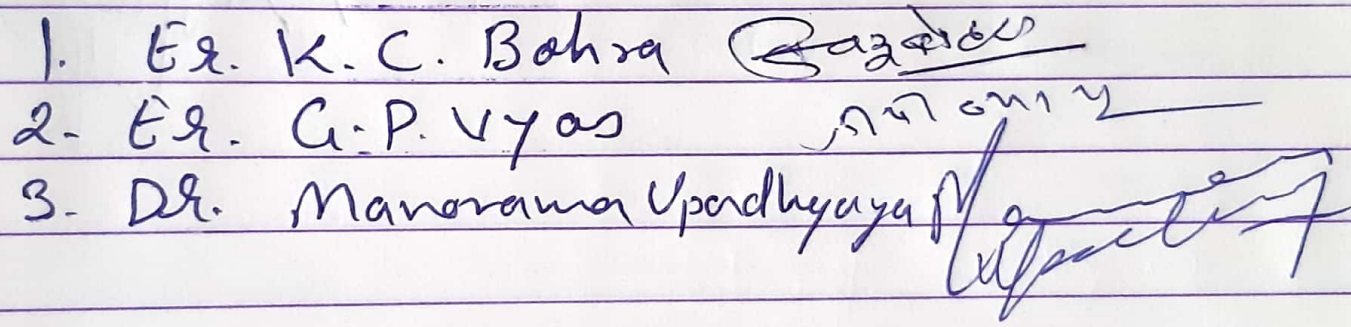 1. Er. K. C. Bohra
2. Er. G. P. Vyas
3. Dr. Manorama Upadhyaya